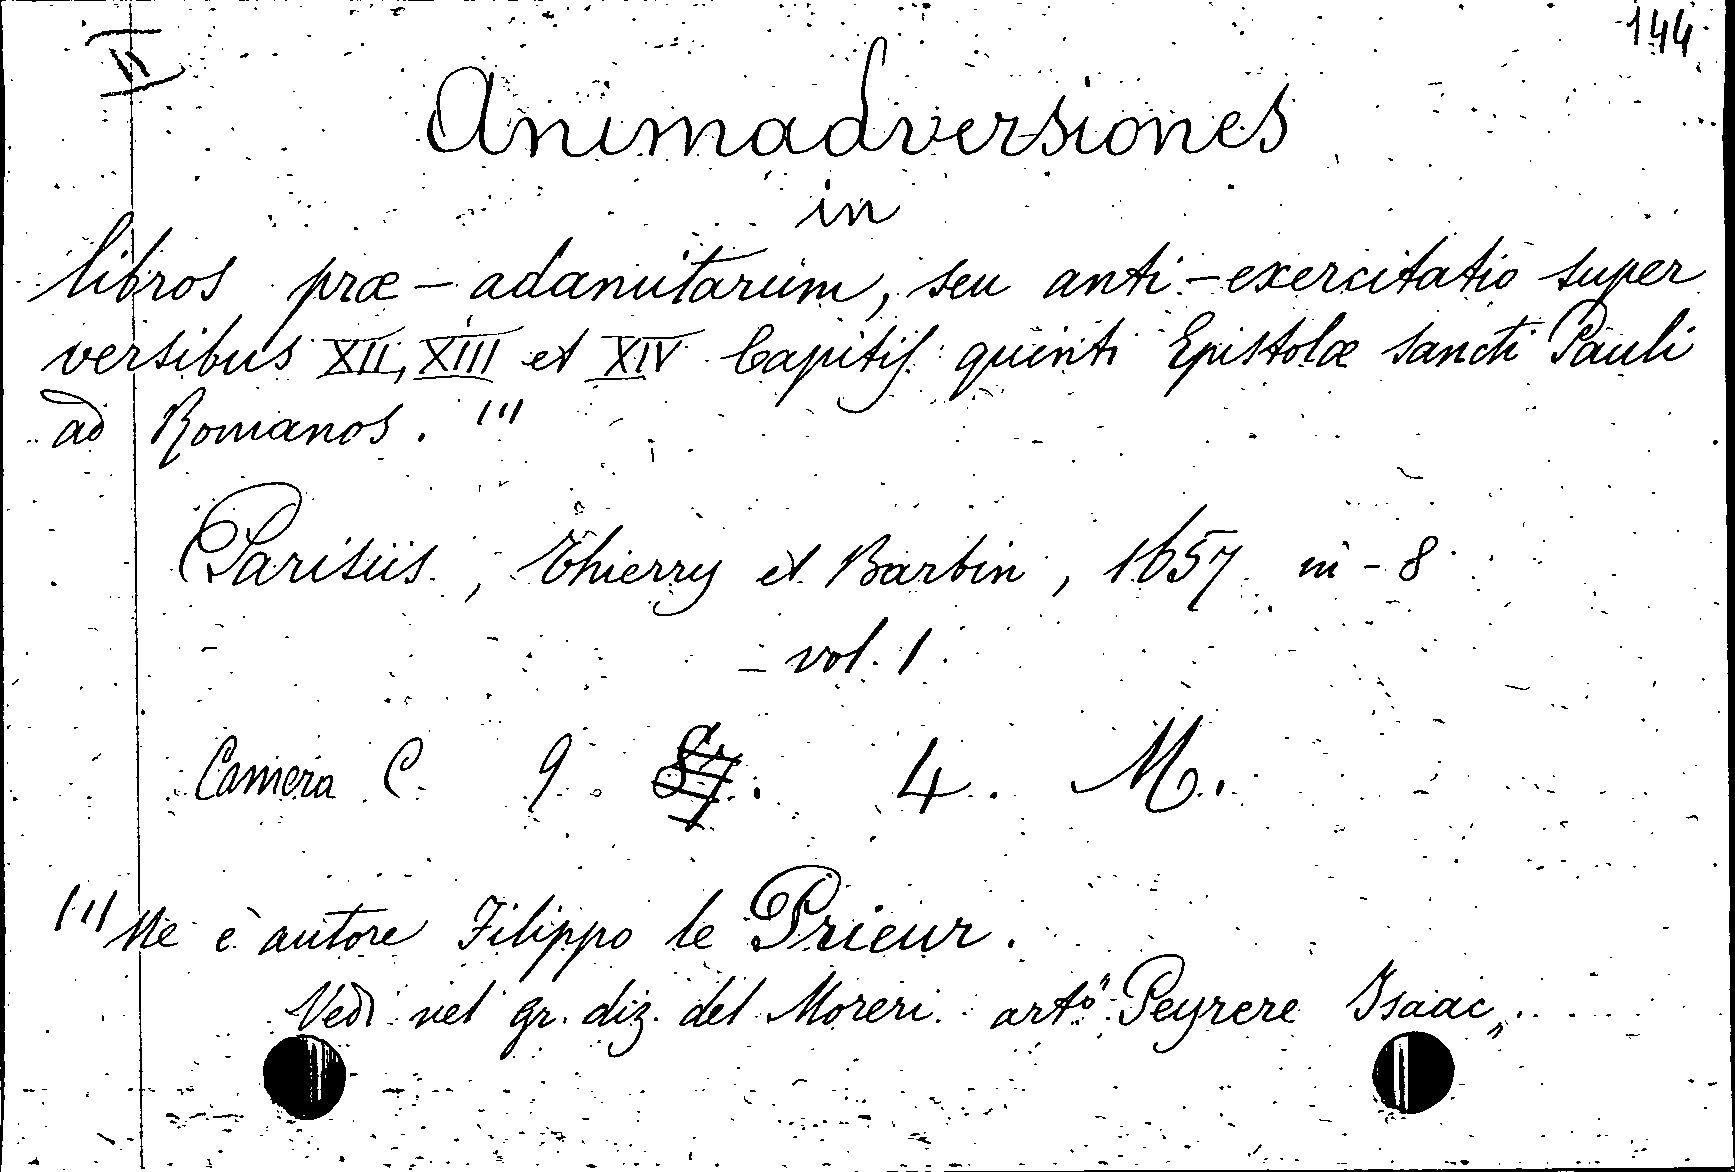 II
144
Animadversiones
in
libros præ-adamitarum, seu anti-exercitatio super
versibus XII, XIII et XIV Capitis quinti Epistolæ sancti Pauli
ad Romanos. (1)
Parisiis, Thierry et Barbin, 1657 in-8
- vol. 1.
Camera C 9. 4. M.
(1) Ne è autore Filippo le Prieur.
Vedi nel gr. diz. del Moreri arto "Peyrere Isaac„